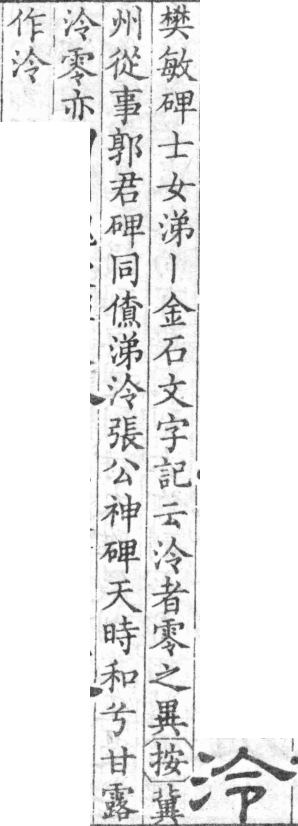 泠
樊敏碑士女涕丨金石文字記云泠者零之異按冀
州從事郭君碑同儥涕泠張公神碑天時和兮甘露
泠零亦
作泠